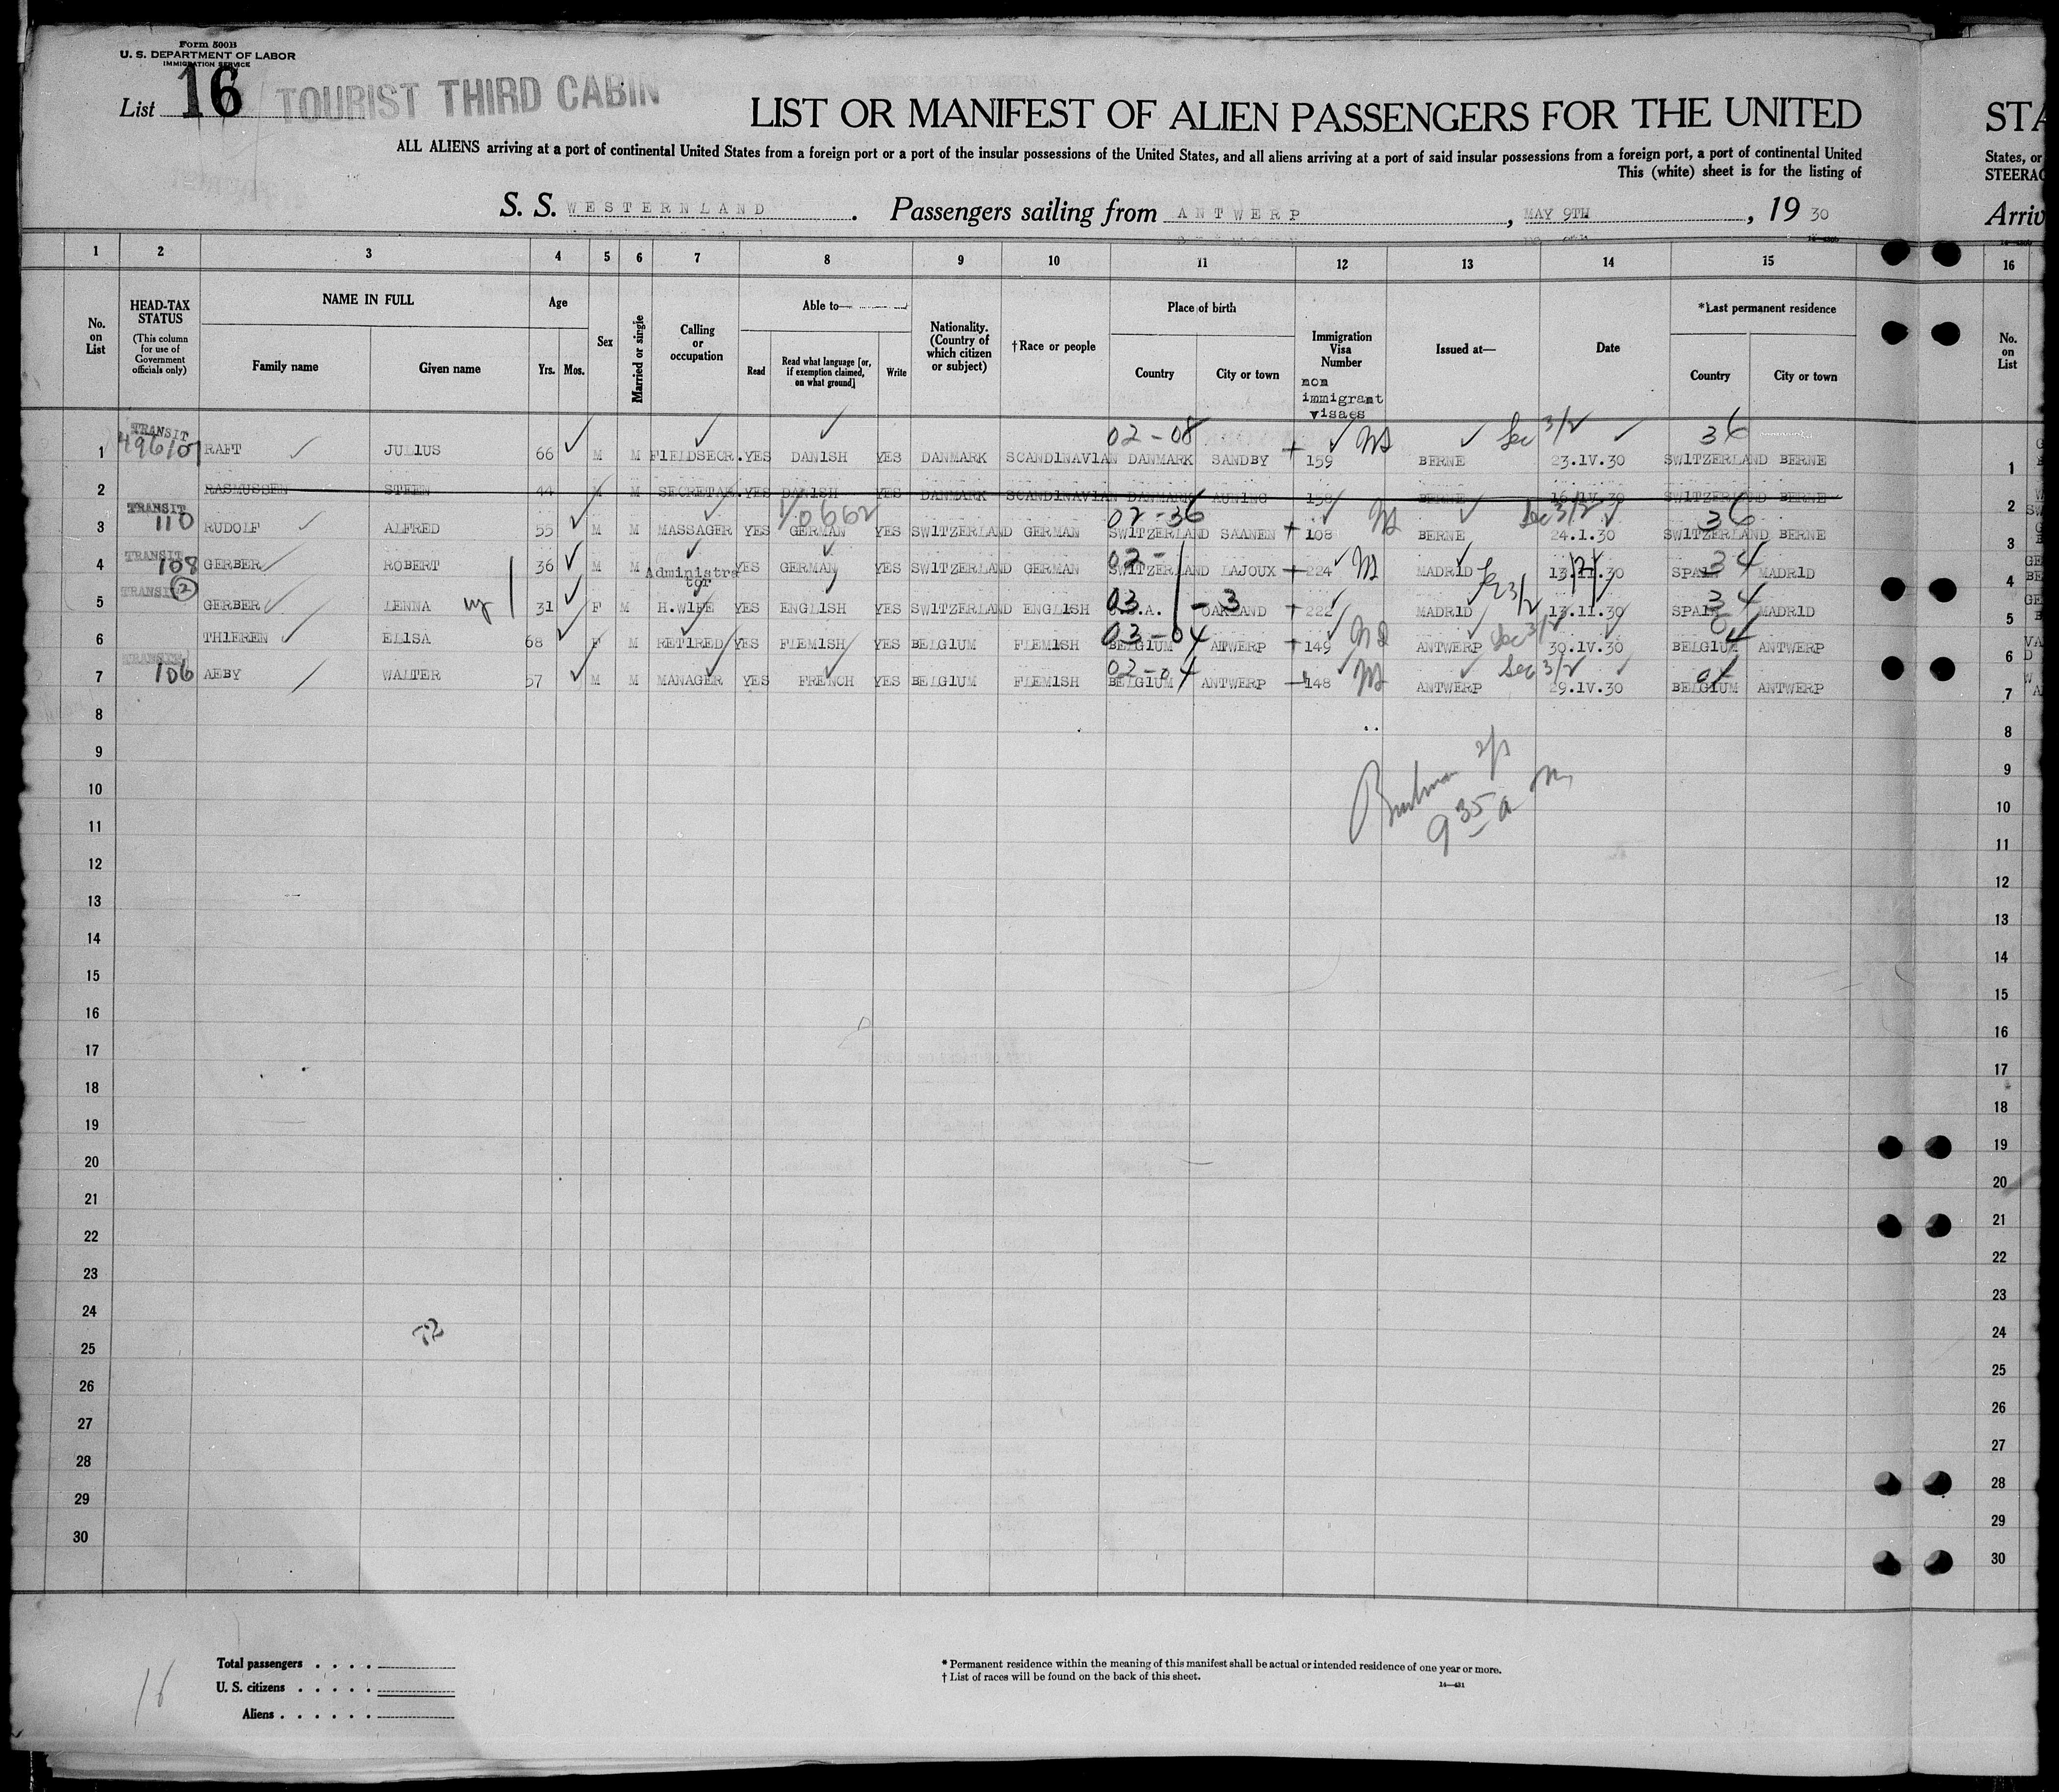 Form 500B
U. S. DEPARTMENT OF LABOR
IMMIGRATION SERVICE
List 16 TOURIST THIRD CABIN
LIST OR MANIFEST OF ALIEN PASSENGERS FOR THE UNITED STA
ALL ALIENS arriving at a port of continental United States from a foreign port or a port of the insular possessions of the United States, and all aliens arriving at a port of said insular possessions from a foreign port, a port of continental United States, or
This (white) sheet is for the listing of STEERAG
S. S. WESTERNLAND. Passengers sailing from ANTWERP, MAY 9TH, 19 30 Arriv
1 2 3 4 5 6 7 8 9 10 11 12 13 14 15 16
No. on List
HEAD-TAX STATUS (This column for use of Government officials only)
NAME IN FULL
Family name
Given name
Age
Yrs.
Mos.
Sex
Married or single
Calling or occupation
Able to—
Read
Read what language [or, if exemption claimed, on what ground]
Write
Nationality. (Country of which citizen or subject)
†Race or people
Place of birth
Country
City or town
Immigration Visa Number
non immigrant visaes
Issued at—
Date
*Last permanent residence
Country
City or town
No. on List
TRANSIT 02-08 Sec 3/2 36
1 RAFT JULIUS 66 M M FIELDSECR. YES DANISH YES DANMARK SCANDINAVIAN DANMARK SANDBY 159 BERNE 23.1V.30 SWITZERLAND BERNE 1
2 RASMUSSEN STEEN 44 M M SECRETAR. YES DANISH YES DANMARK SCANDINAVIAN DANMARK AUNING 158 BERNE 16.1V.30 SWITZERLAND BERNE 2
TRANSIT 110 02-36 Sec 3/2 36
3 RUDOLF ALFRED 55 M M MASSAGER YES GERMAN YES SWITZERLAND GERMAN SWITZERLAND SAANEN 108 BERNE 24.1.30 SWITZERLAND BERNE 3
TRANSIT 108 02- 34
4 GERBER ROBERT 36 M M Administrator YES GERMAN YES SWITZERLAND GERMAN SWITZERLAND LAJOUX 224 MADRID 13.11.30 SPAIN MADRID 4
TRANSIT 2 03 - 3 3/2 34
5 GERBER LENNA 31 F M H.WIFE YES ENGLISH YES SWITZERLAND ENGLISH U.S.A. OAKLAND 222 MADRID 13.11.30 SPAIN MADRID 5
03-04 Sec 3/2 04
6 THIEREN ELISA 68 F M RETIRED YES FLEMISH YES BELGIUM FLEMISH BELGIUM ATWERP 149 ANTWERP 30.1V.30 BELGIUM ANTWERP 6
TRANSIT 106 02-04 Sec 3/2 04
7 AEBY WALTER 57 M M MANAGER YES FRENCH YES BELGIUM FLEMISH BELGIUM ANTWERP 148 ANTWERP 29.1V.30 BELGIUM ANTWERP 7
8 8
9 9
10 10
9 35 a m
11 11
12 12
13 13
14 14
15 15
16 16
17 17
18 18
19 19
20 20
21 21
22 22
23 23
24 24
25 25
26 26
27 27
28 28
29 29
30 30
16
Total passengers . . . .
U. S. citizens . . . . .
Aliens . . . . . .
* Permanent residence within the meaning of this manifest shall be actual or intended residence of one year or more.
† List of races will be found on the back of this sheet.
14—431